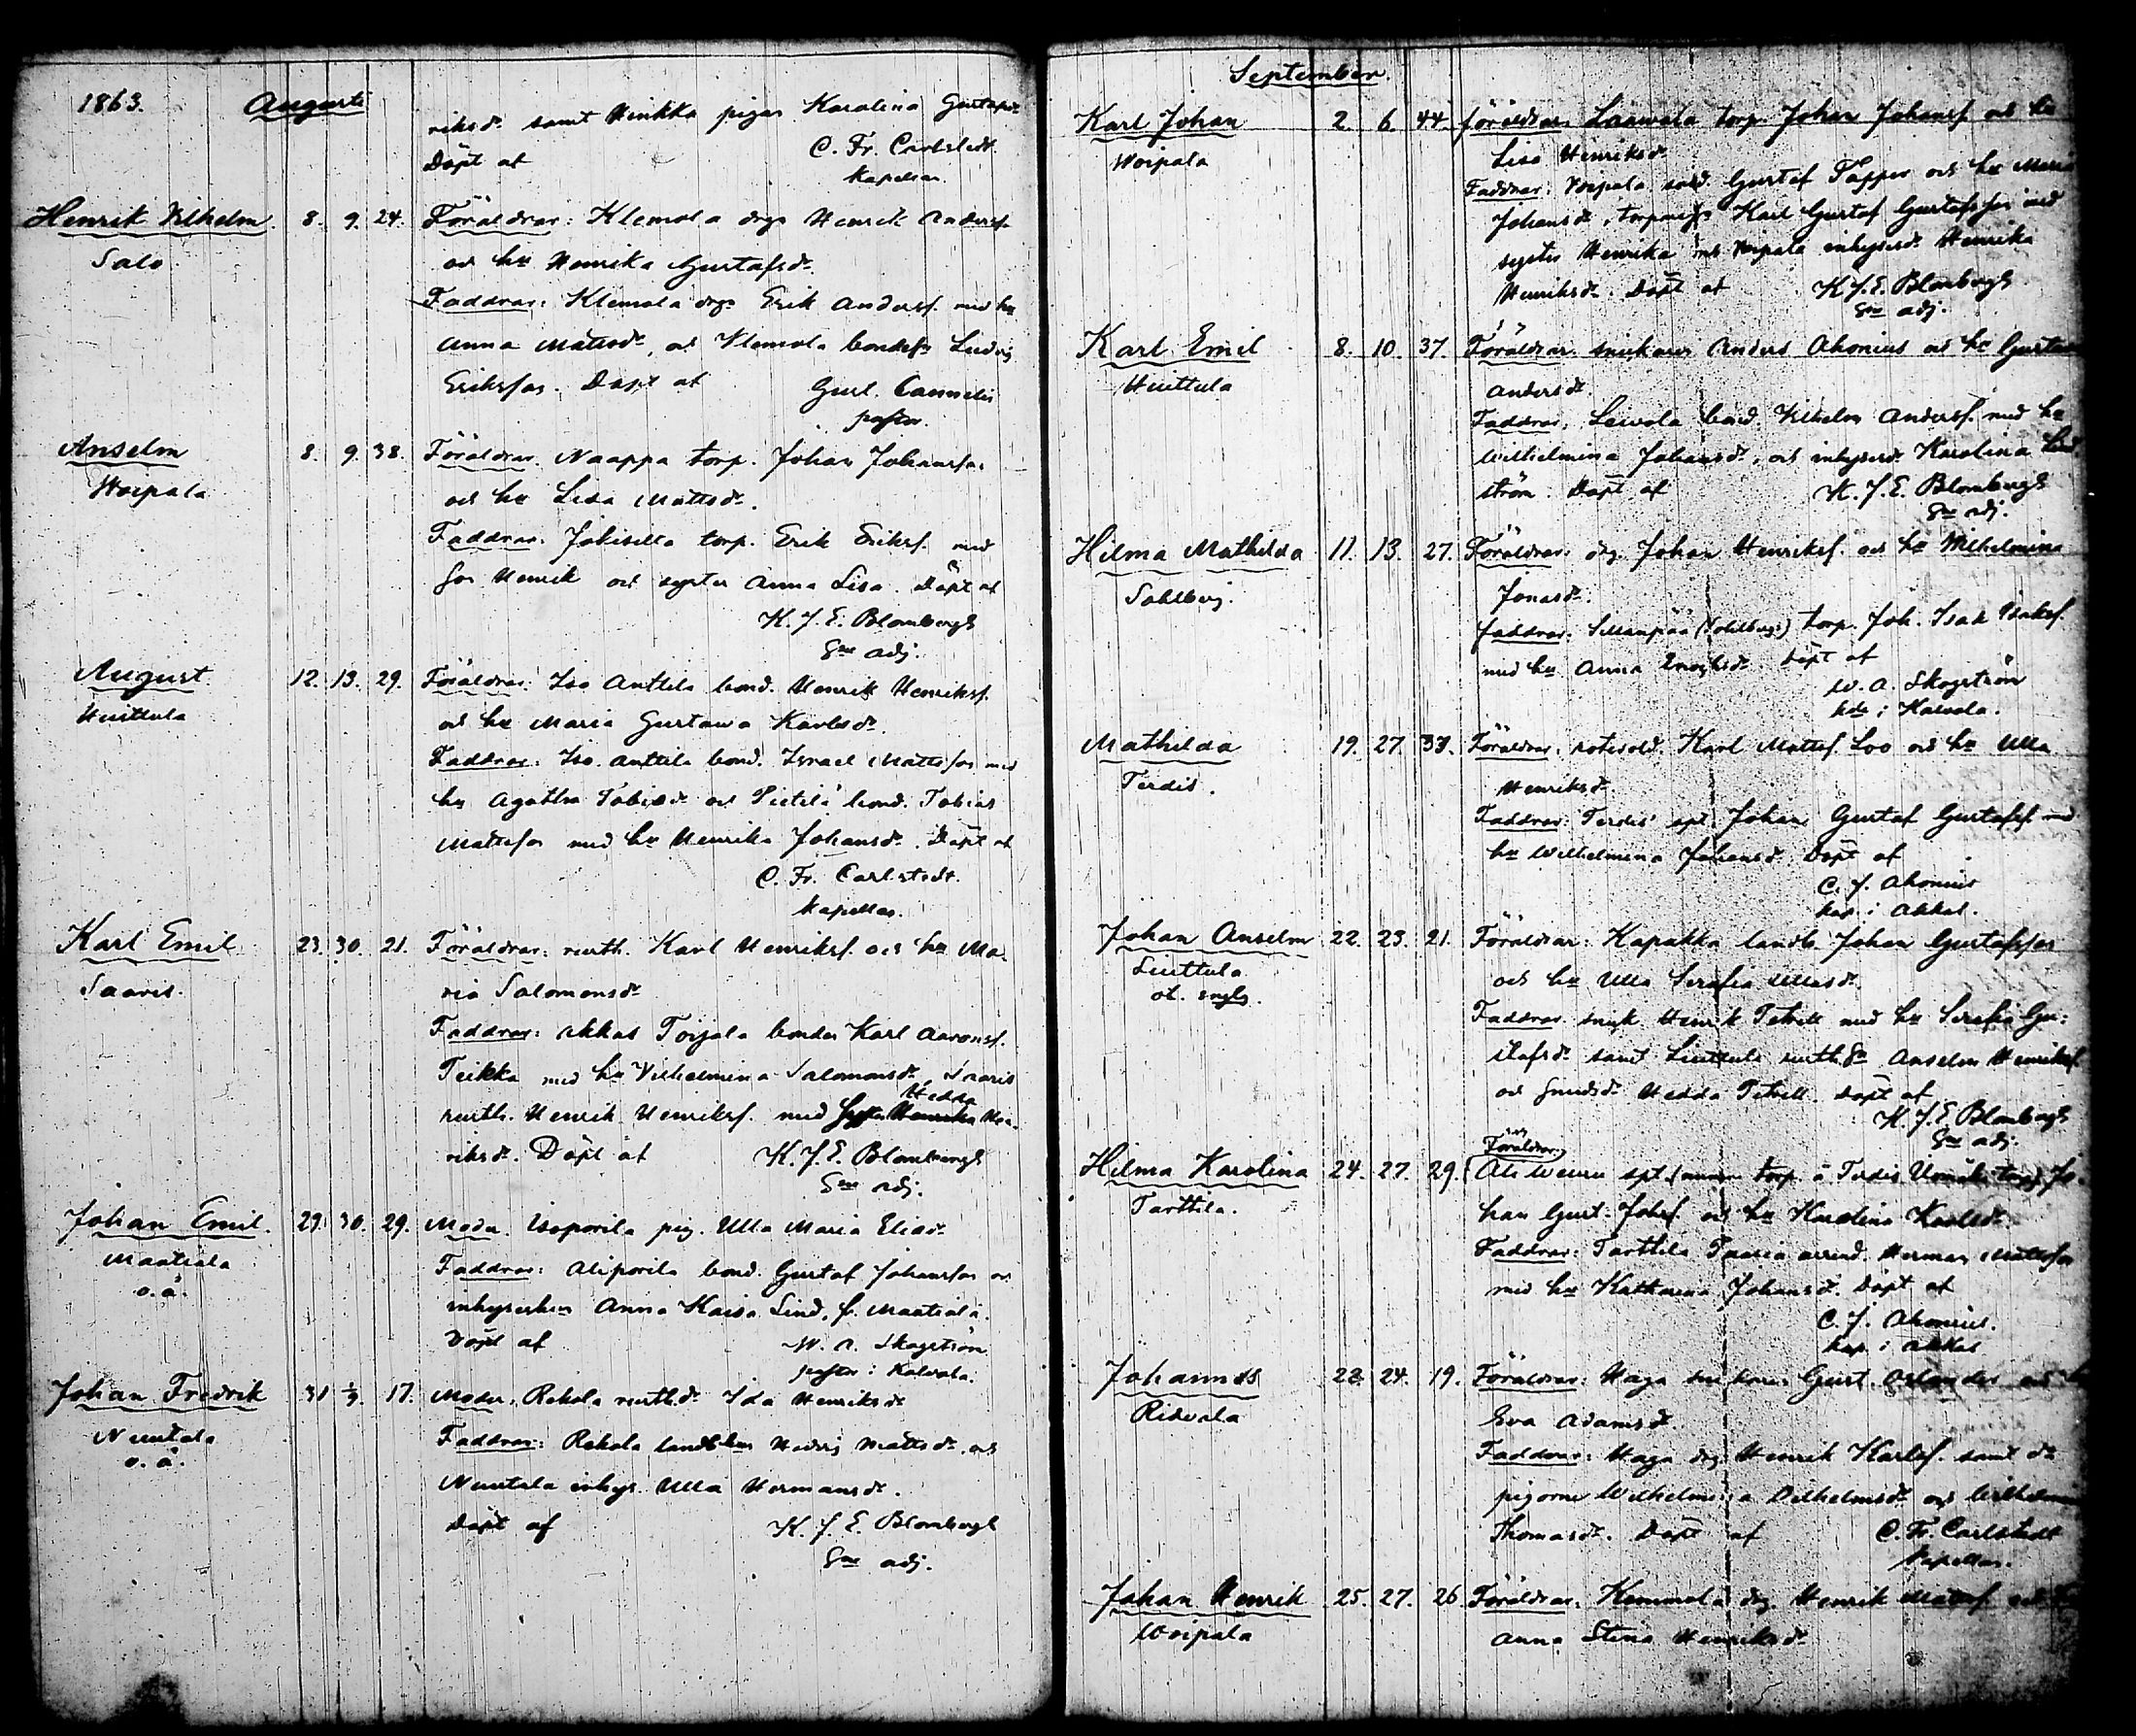 1863. Augusti
riksdr samt Hinkka pigan Karolina Gustafsdr
Döpt af C. Fr. Carlstedt.
kapellan.
Henrik Vilhelm. 8. 9. 24. Föräldrar: Klemola drgn Henrik Andersf.
Salo och hu Henrika Gustafsdr.
Faddrar: Klemola drgn Erik Andersf. med hu
Anna Mattsdr, och Klemola bondesn Ludvig
Eriksson. Döpt af Gust. Cannelin
pastor.
Anselm 8. 9. 38. Föräldrar. Naappa torp. Johan Johansson
Woipala och hu Lisa Mattsdr.
Faddrar. Jokisilta torp. Erik Eriksf. med
son Henrik och syster Anna Lisa. Döpt af
K. J. E. Blombergh
Sne adj.
August 12. 13. 29. Föräldrar. Iso Anttila bond. Henrik Henriksf.
Huittula och hu Maria Gustava Karlsdr.
Faddrar: Iso Anttila bond. Israel Mattsson med
hu Agatha Tobiædr och Pietilä bond. Tobias
Mattsson med hu Henrika Johansdr. Döpt af
C. Fr. Carlstedt.
Kapellan.
Karl Emil 23. 30. 21. Föräldrar: rusth. Karl Henriksf. och hu Ma-
Saaris. ria Salomonsdr
Faddrar: Akkas Torjala bonden Karl Aaronsf.
Teikka med hu Vilhelmina Salomonsdr, Saaris
Hedda
rusth. Henrik Henriksf. med Hen-
riksdr. Döpt af K. J. E. Blombergh
Sne adj.
Johan Emil. 29. 30. 29. Moder. Isoporila pig. Ulla Maria Eliædr
Maatiala Faddrar: Aliporila bond. Gustaf Johansson och
o.ä. inhyseshu Anna Kaisa Lind, fr. Maatiala.
Döpt af W. A. Skogström
pastor i Kalvola.
Johan Fredrik 31 1/9. 17. Moder. Rekola rusth.dr Ida Henriksdr
Nuutala Faddrar: Rekola landb.hu Hedvig Mattsdr, och
o.ä. Nuutala inhys. Ulla Hermansdr.
Döpt af K. J. E. Blombergh
Sne adj.
September.
Karl Johan 2. 6. 44. föräldrar. torp. Johan Johansf. och hu
Woipala Lisa Henriksdr.
Faddrar: Woipala sold. Gustaf Tapper och hu Maria
Johansdr, Karl Gustaf Gustafsson med
syster Henrika och Woipala inhysesdr Henrika
Henriksdr. Döpt af K. J. E. Blombergh
Sne adj.
Karl Emil 8. 10. 37. Föräldrar. snickaren Anders Ahonius och hu Gustava
Huittula Andersdr.
Faddrar. bond. Vilhelm Andersf. med hu
Wilhelmina Johansdr, och inhysesdr Karolina Lind
ström. Döpt af K. J. E. Blombergh
Sne adj.
Hilma Mathilda 11. 13. 27. Föräldrar. drg. Johan Henriksf. och hu Wilhelmina
Sohlberg. Jonasdr.
faddrar: (Sohlberg) torp. Joh. Isak Isaksf.
med hu Anna Döpt af
W. A. Skogström
i Kalvola.
Mathilda 19. 27. 33. Föräldrar: rotesold. Karl Mattsf. Loo och hu Ulla
Terdis. Henriksdr.
Faddrar: Terdis spt. Johan Gustaf Gustafsf. med
hu Wilhelmina Johansdr. Döpt af
C. J. Ahonius
kap. i Akkas.
Johan Anselm 22. 23. 21. Föräldrar: Kapakka landb. Johan Gustafsson
Liuttula och hu Ulla Serafia
Faddrar. Henrik Tetrell med hu Serafia Gu-
stafsdr samt Liuttula rusth.sn Anselm Henriksf.
och smedsdr Hedda Tetrell. Döpt af
K. J. E. Blombergh
Sne adj.
Föräldrar
Hilma Karolina 24. 27. 29. torp. Jo-
Tarttila. han Gust. Johsf. och hu Karolina Karlsdr
Faddrar: Tarttila arrend. Herman Mattsson
med hu Katharina Johansdr. Döpt af
C. J. Ahonius.
kap. i Akkas
Johannes 22. 24. 19. Föräldrar: Haga Gust. och hu
Ridvala Eva Adamsdr.
Faddrar: Haga drg. Henrik Karlsf. samt
pigorne Wilhelmina Vilhelmsdr och Wilhelmina
Thomasdr. Döpt af C. Fr. Carlstedt
Kapellan.
Johan Henrik 25. 27. 26. Föräldrar. drg. Henrik Mattsf. och
Woipala Anna Stina Henriksdr